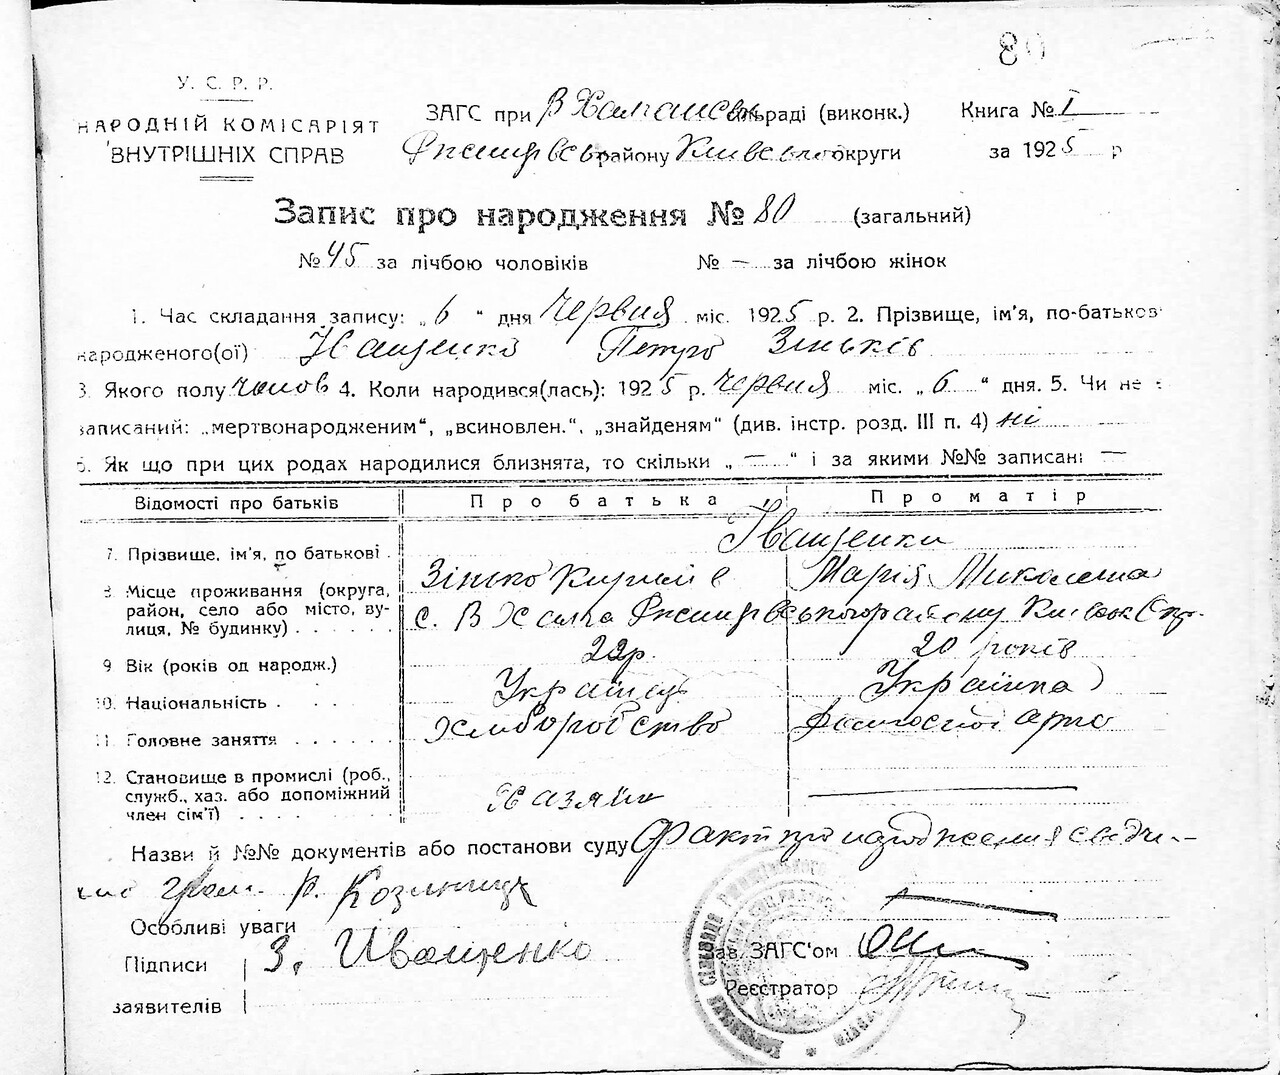 80
У. С. Р. Р.
НАРОДНІЙ КОМІСАРІЯТ
ВНУТРІШНІХ СПРАВ
ЗАГС при В Халчанськ сільраді (виконк.)
району Київської округи
Книга № I
за 1925 р
Запис про народження № 80 (загальний)
№ 45 за лічбою чоловіків № — за лічбою жінок
1. Час складання запису: „6" дня Червня міс. 1925 р. 2. Прізвище, ім'я, по-батьков
народженого(ої) Іващенко Петро Зіньків
3. Якого полу чолов 4. Коли народився(лась): 1925 р. Червня міс. „6" дня. 5. Чи не
записаний: „мертвонародженим", „всиновлен.", „знайденям" (див. інстр. розд. III п. 4) ні
6. Як що при цих родах народилися близнята, то скільки „—" і за якими №№ записані —
Відомості про батьків Про батька Про матір
Іващенки
7. Прізвище, ім'я, по батькові . Зінько Кирилів Марія Миколаєва
8. Місце проживання (округа, район, село або місто, вулиця, № будинку) . . . . . с. В Халча району Київськ Окр.
9. Вік (років од народж.) 22р. 20 років
10. Національність . . . . Українець Українка
11. Головне заняття . . . . . . Хліборобство
12. Становище в промислі (роб., служб., хаз. або допоміжний член сім'ї) . . . . . Хазяїн —
Назви й №№ документів або постанови суду Факт про народження свідчи-
гром.
Особливі уваги
Підписи З. Иващенко
заявителів
Зав. ЗАГС'ом
Реєстратор